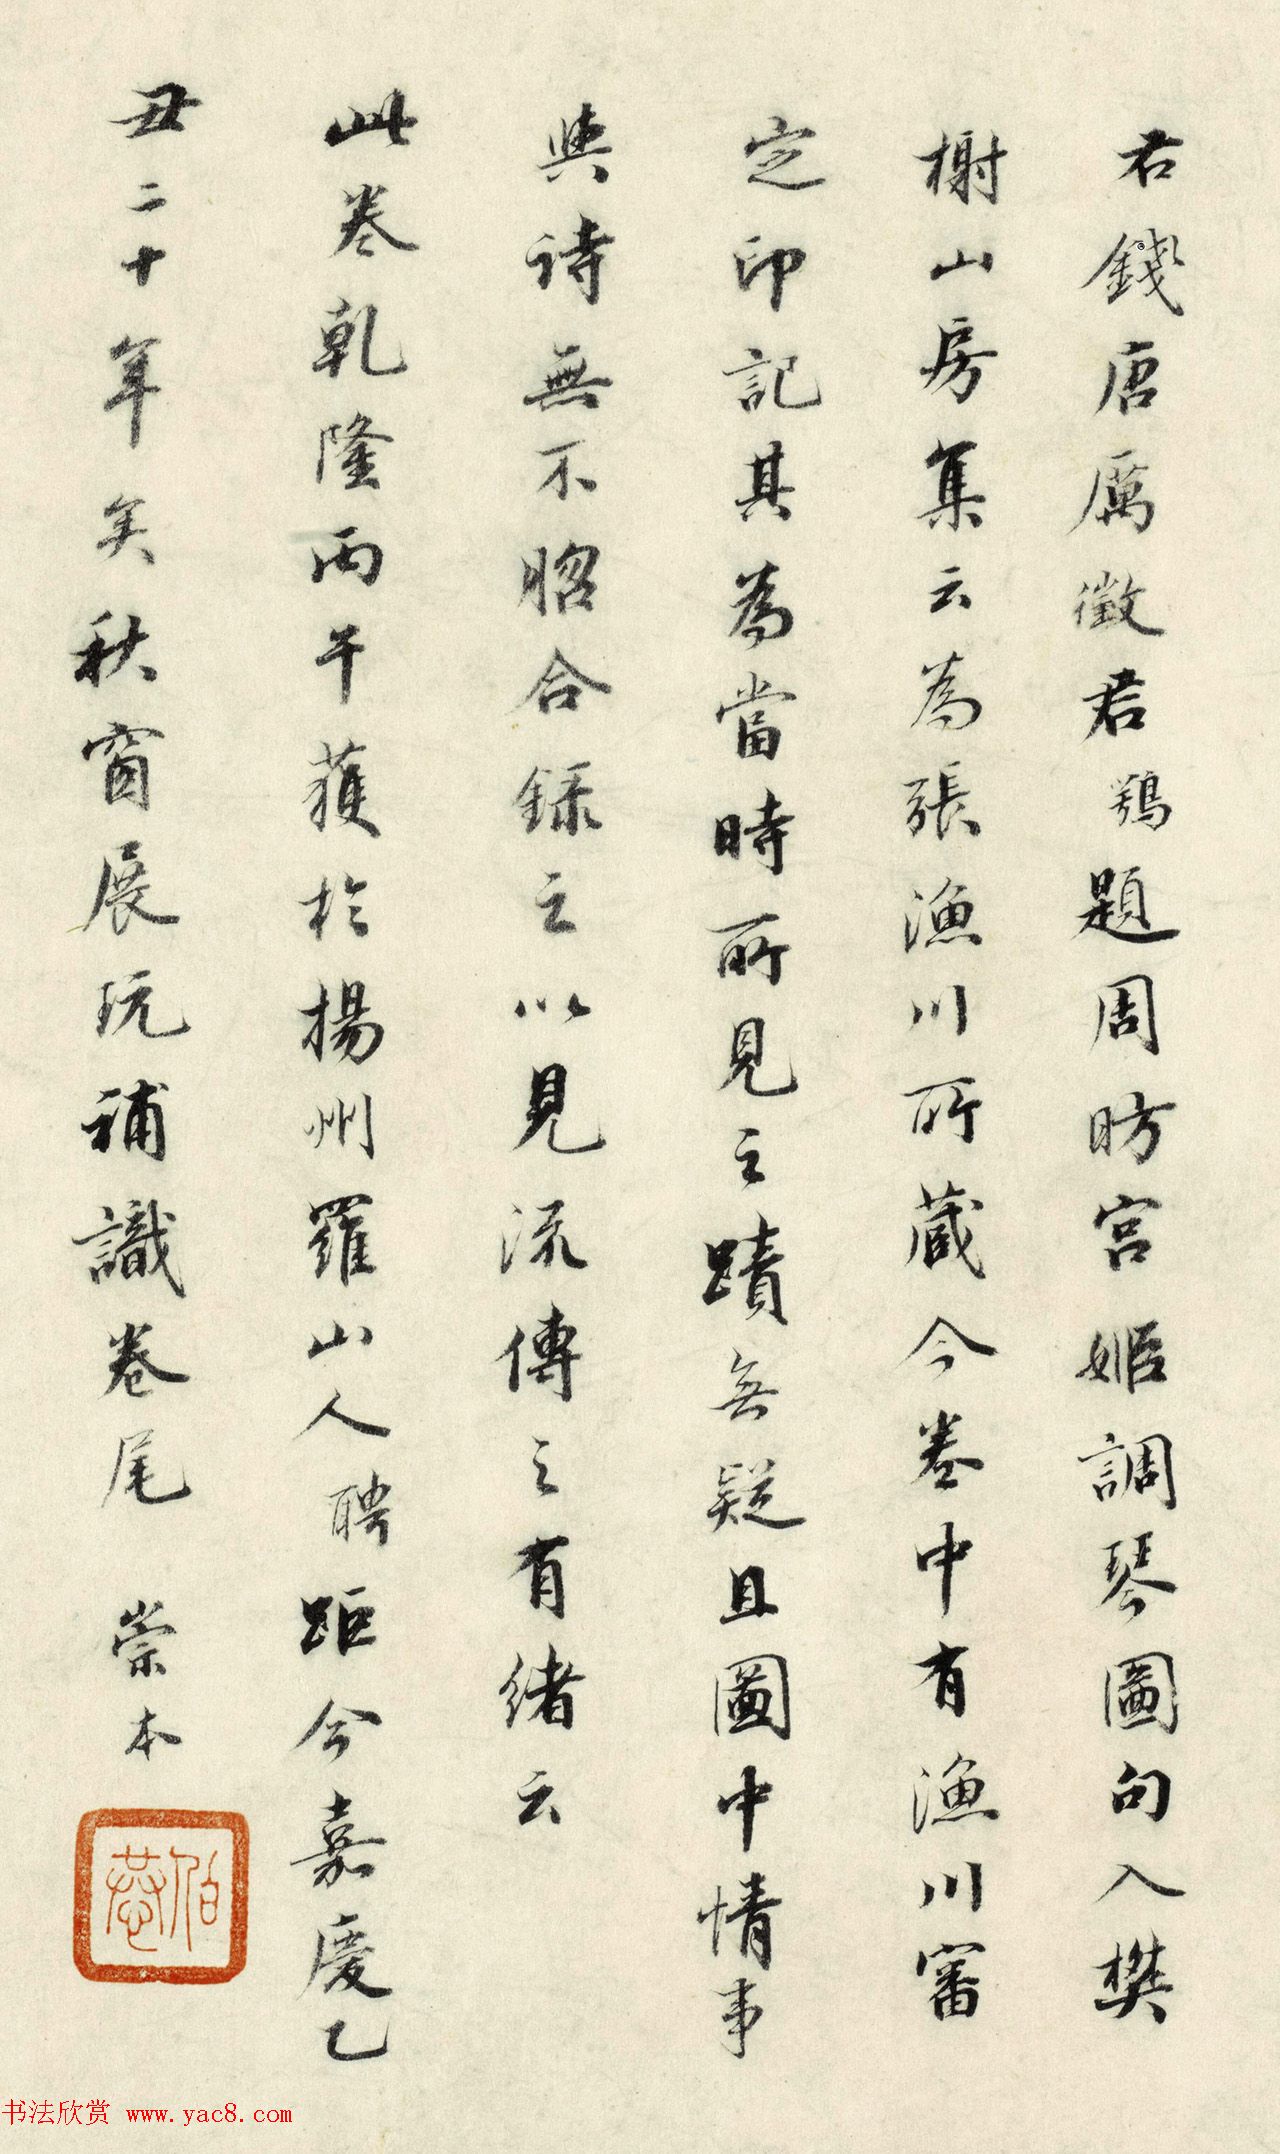 右錢唐厲徵君鶚題周昉宮姬調琴圖句入樊
榭山房集云為張漁川所藏今卷中有漁川審
定印記其為當時所見之蹟無疑且圖中情事
與詩無不胳合錄之以見流傳之有緒云
此卷乾隆丙午獲於揚州羅山人聘距今嘉慶乙
丑二十年矣秋窗展玩補識卷尾 崇本
書法欣賞 www.yac8.com